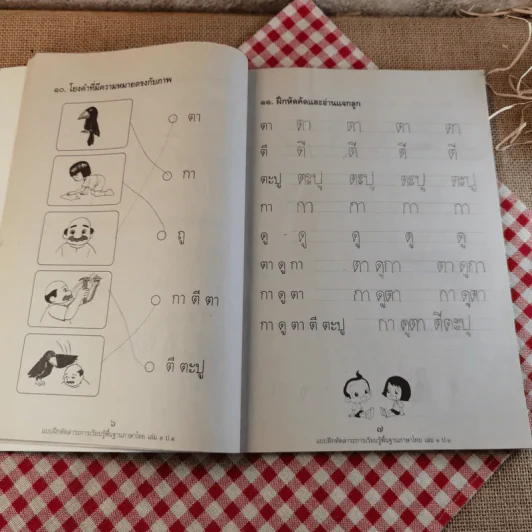 ๑๐. โยงคำที่มีความหมายตรงกับภาพ
ตา
กา
ถู
กา ตี ตา
ตี ตะปู
๖
แบบฝึกหัดสาระการเรียนรู้พื้นฐานภาษาไทย เล่ม ๑ ป.๑
๑๑. ฝึกหัดคัดและอ่านแจกลูก
ตา ตา ตา ตา ตา
ตี ตี ตี ตี ตี
ตะปู ตะปู ตะปู ตะปู ตะปู
กา กา กา กา กา
ดู ดู ดู ดู ดู
ตา ดู กา ตา ดูกา ตา ดูกา
กา ดู ตา กา ดูตา กา ดูตา
กา ดู ตา ตี ตะปู กา ดูตา ตีตะปู
๗
แบบฝึกหัดสาระการเรียนรู้พื้นฐานภาษาไทย เล่ม ๑ ป.๑